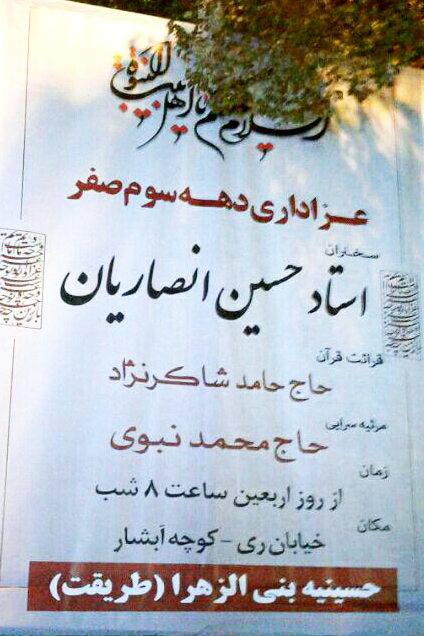 السلام علیکم یا اهل بیت النبوة
عزاداری دهه سوم صفر
سخنران
استاد حسین انصاریان
قرائت قرآن
حاج حامد شاکرنژاد
مرثیه سرایی
حاج محمد نبوی
زمان
از روز اربعین ساعت ۸ شب
مکان
خیابان ری - کوچه آبشار
حسینیه بنی الزهرا (طریقت)